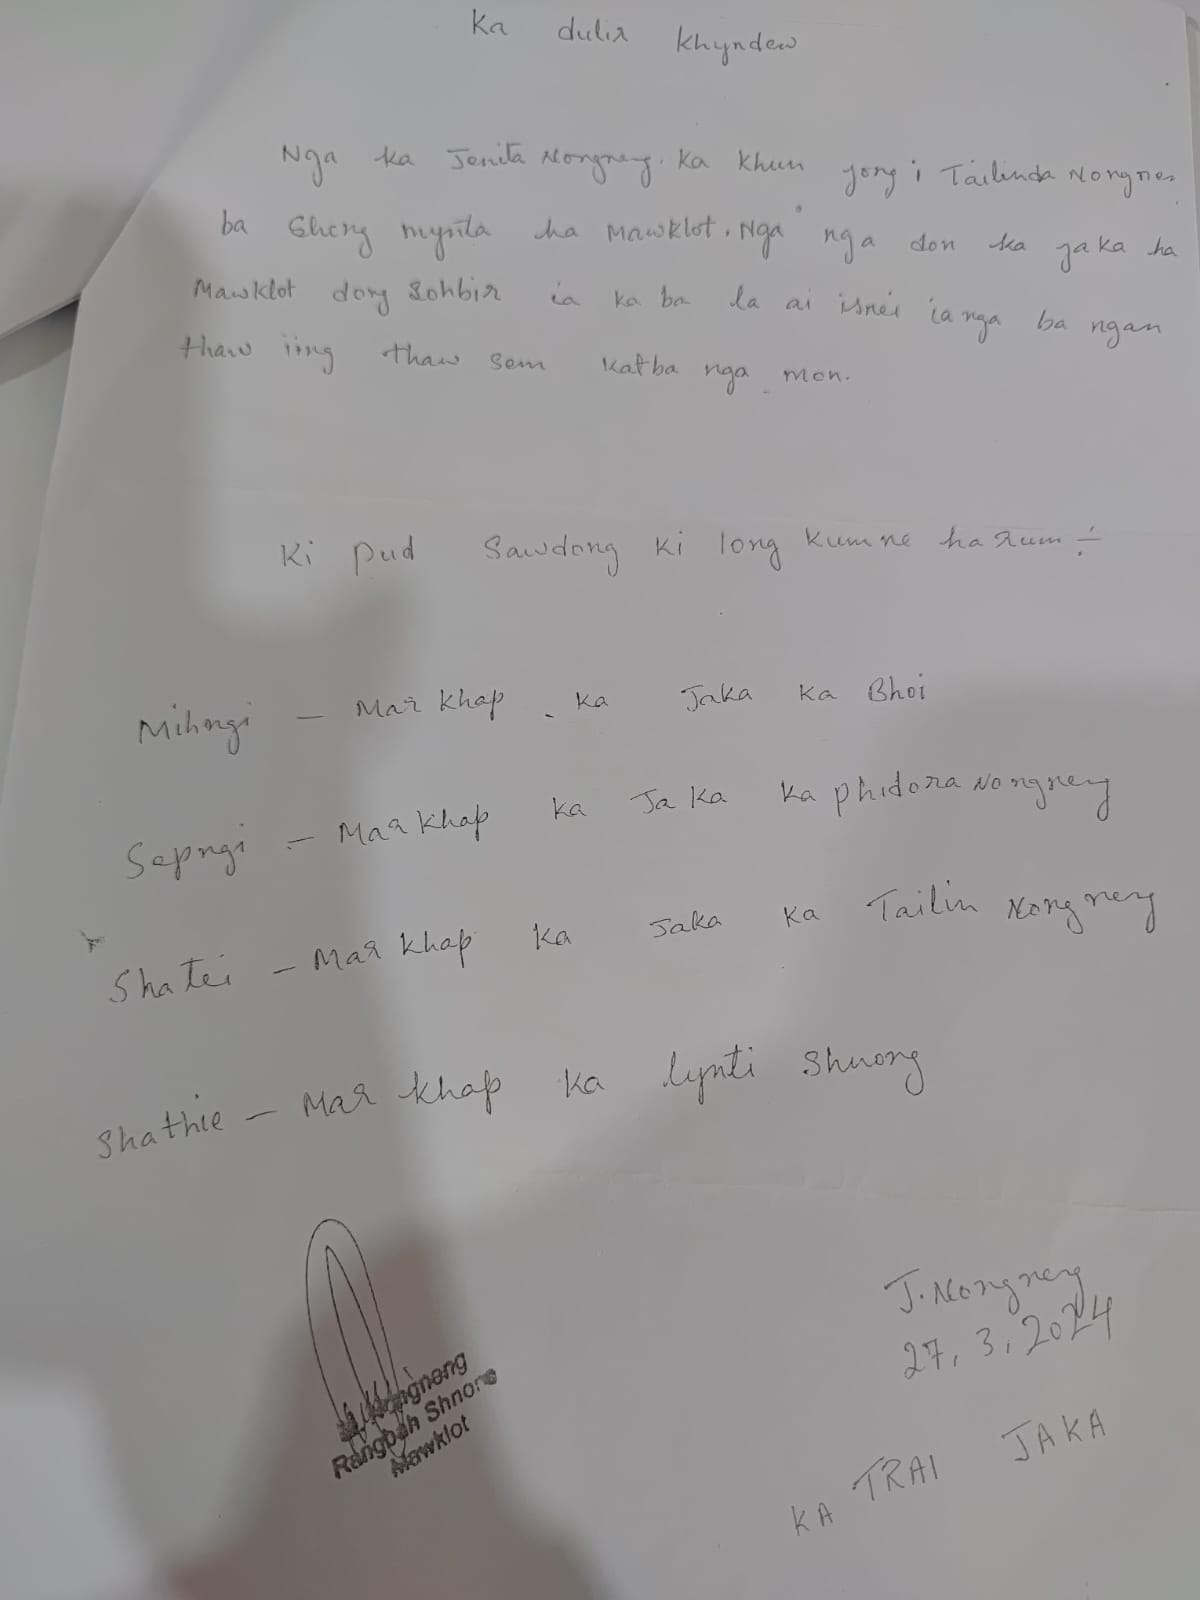 Ka dulir Khyndew
Nga ka Jenita Nongneng. Ka Khun yong i Tailinda Nongnen
ba Sheng mynta ha Mawklot. Nga nga don ka jaka ha
Mawklot dong Sohbir ia ka ba la ai isnei ia nga ba ngan
thaw iing thaw sem katba nga mon.
Ki pud Sawdong ki long kumne harum ÷
Mihngi – Mar khap ka Jaka ka Bhoi
Sepngi – Mar khap ka Jaka ka phidora Nongneng
Shatei – Mar khap ka Jaka ka Tailin Nongneng
Shathie – Mar khap ka lynti Shnong
J. Nongneng
27, 3, 2024
KA TRAI JAKA
Nongneng
Rangbah Shnong
Mawklot